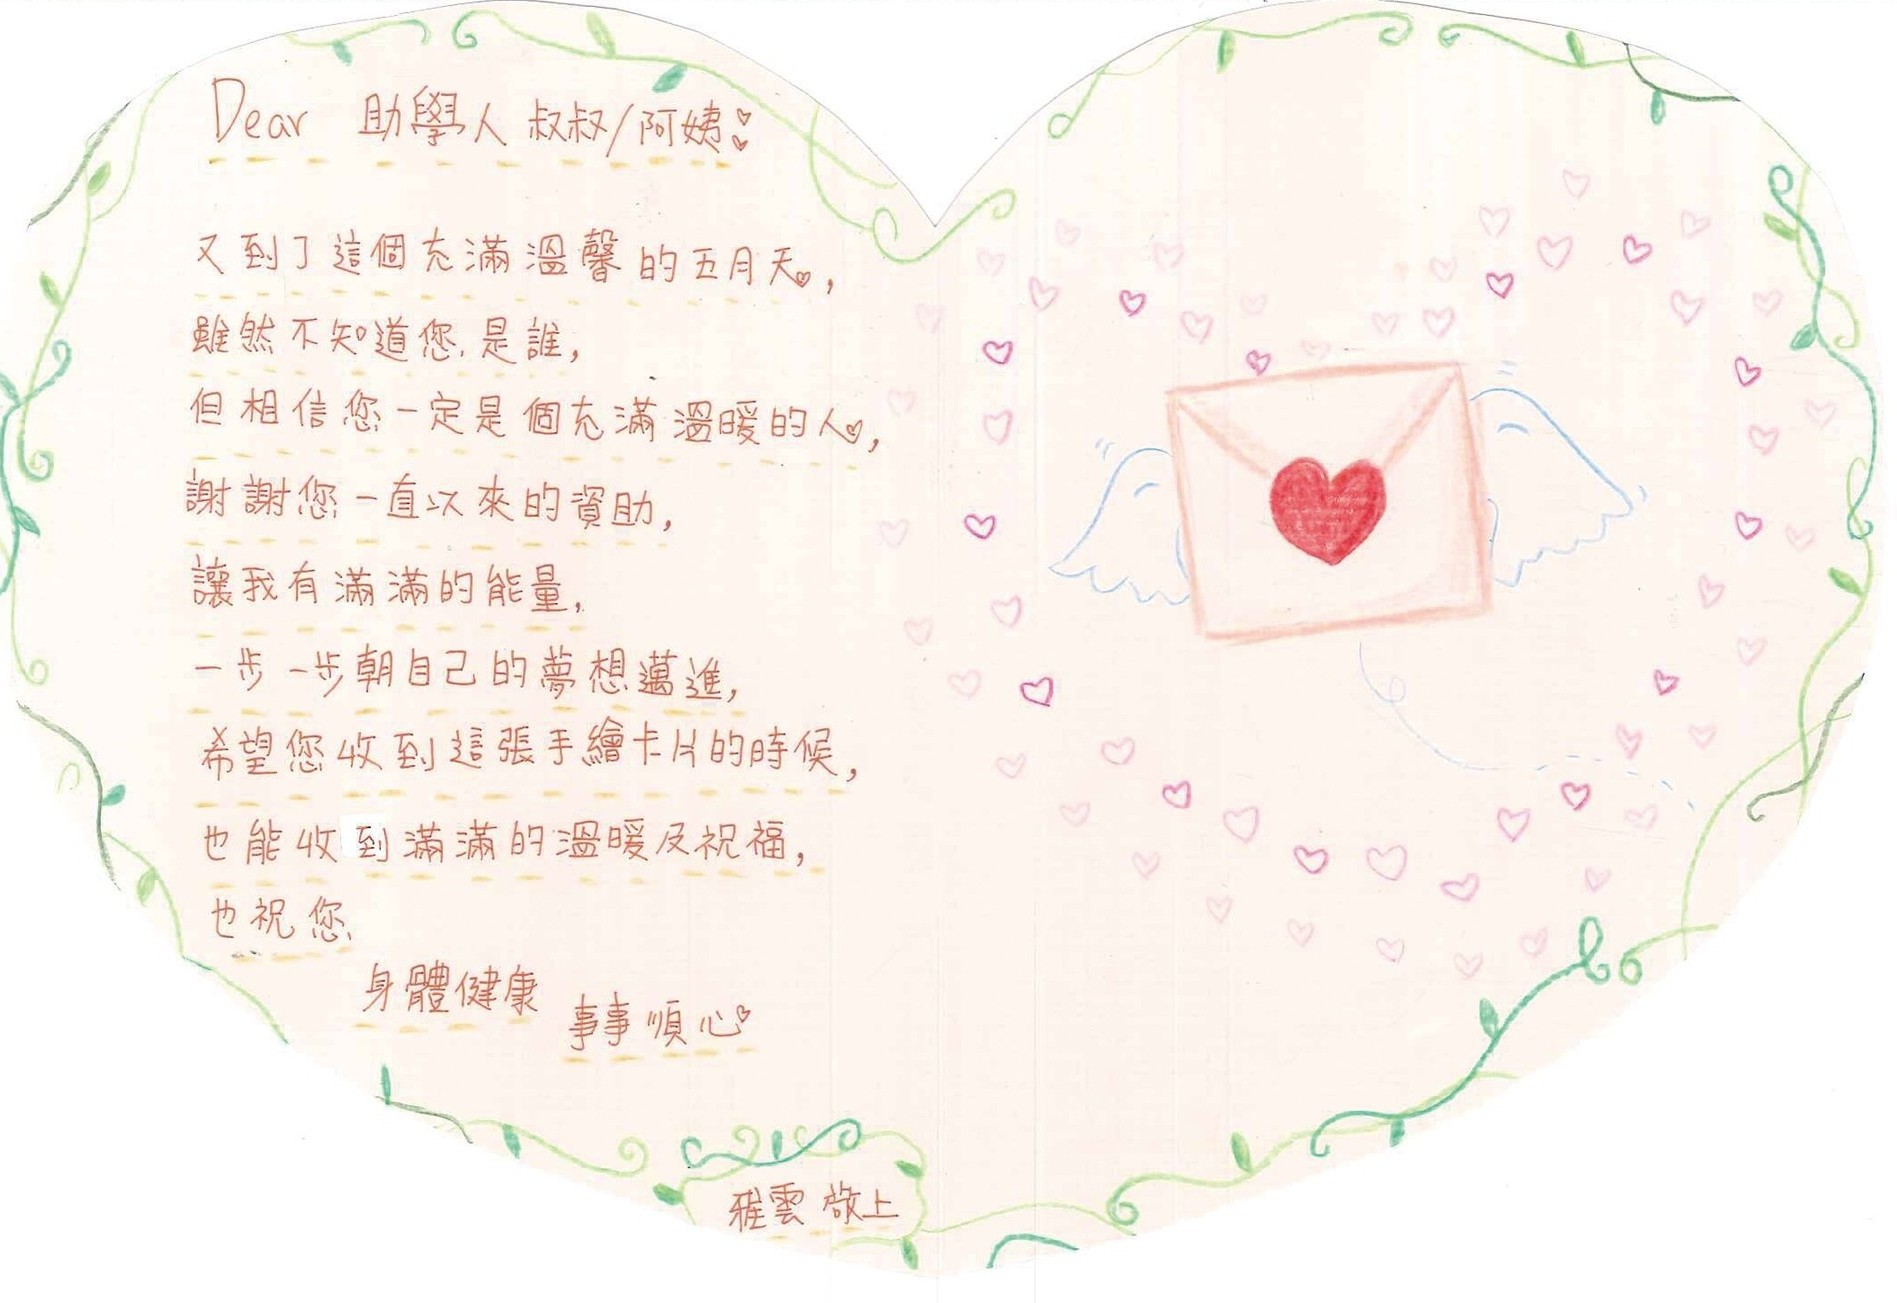 Dear 助學人叔叔/阿姨:
又到了這個充滿溫馨的五月天,
雖然不知道您是誰,
但相信您一定是個充滿溫暖的人,
謝謝您一直以來的資助,
讓我有滿滿的能量,
一步一步朝自己的夢想邁進,
希望您收到這張手繪卡片的時候,
也能收到滿滿的溫暖及祝福,
也祝您
身體健康
事事順心
雅雲 敬上